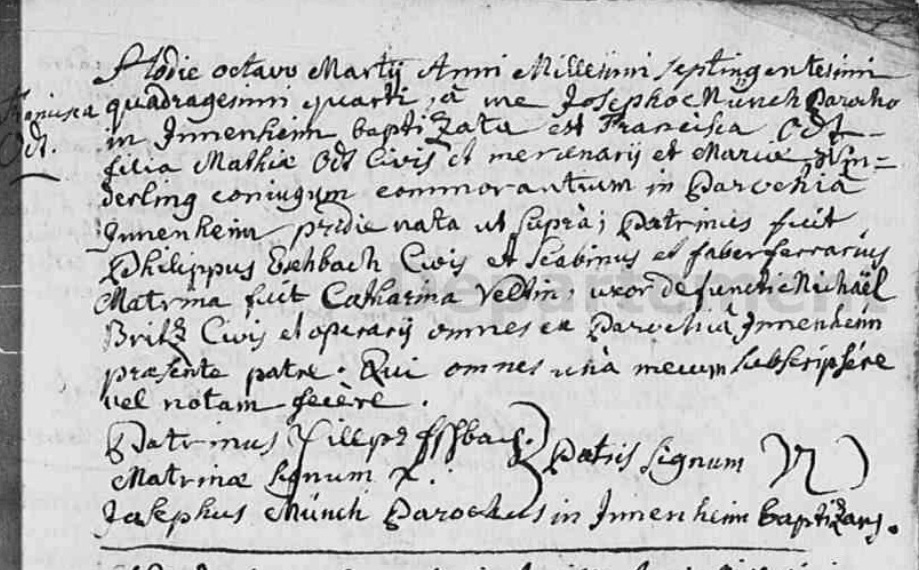 Hodie octavo Martij Anni Millesimi septingentesimi
Francisca quadragesimi quarti, à me Josepho Münch Parocho
Odt. in Innenheim baptizata est Francisca Odt
filia Mathiæ Odt Civis et mercenarij et Mariæ Win=
derling coniugum commorantium in Parochia
Innenheim pridie nata ut supra; Patrinus fuit
Philippus Eschbach Civis et Scabinus et faber ferrarius
Matrina fuit Catharina Veltin; uxor defuncti Michaël
Britz Civis et operarij omnes ex Parochiâ Innenheim
præsente patre. Qui omnes unà mecum subscripsére
vel notam fecère.
Patrinus Eschbach. Patris signum
Matrinæ signum X.
Josephus Münch Parochus in Innenheim baptizans.
Departement